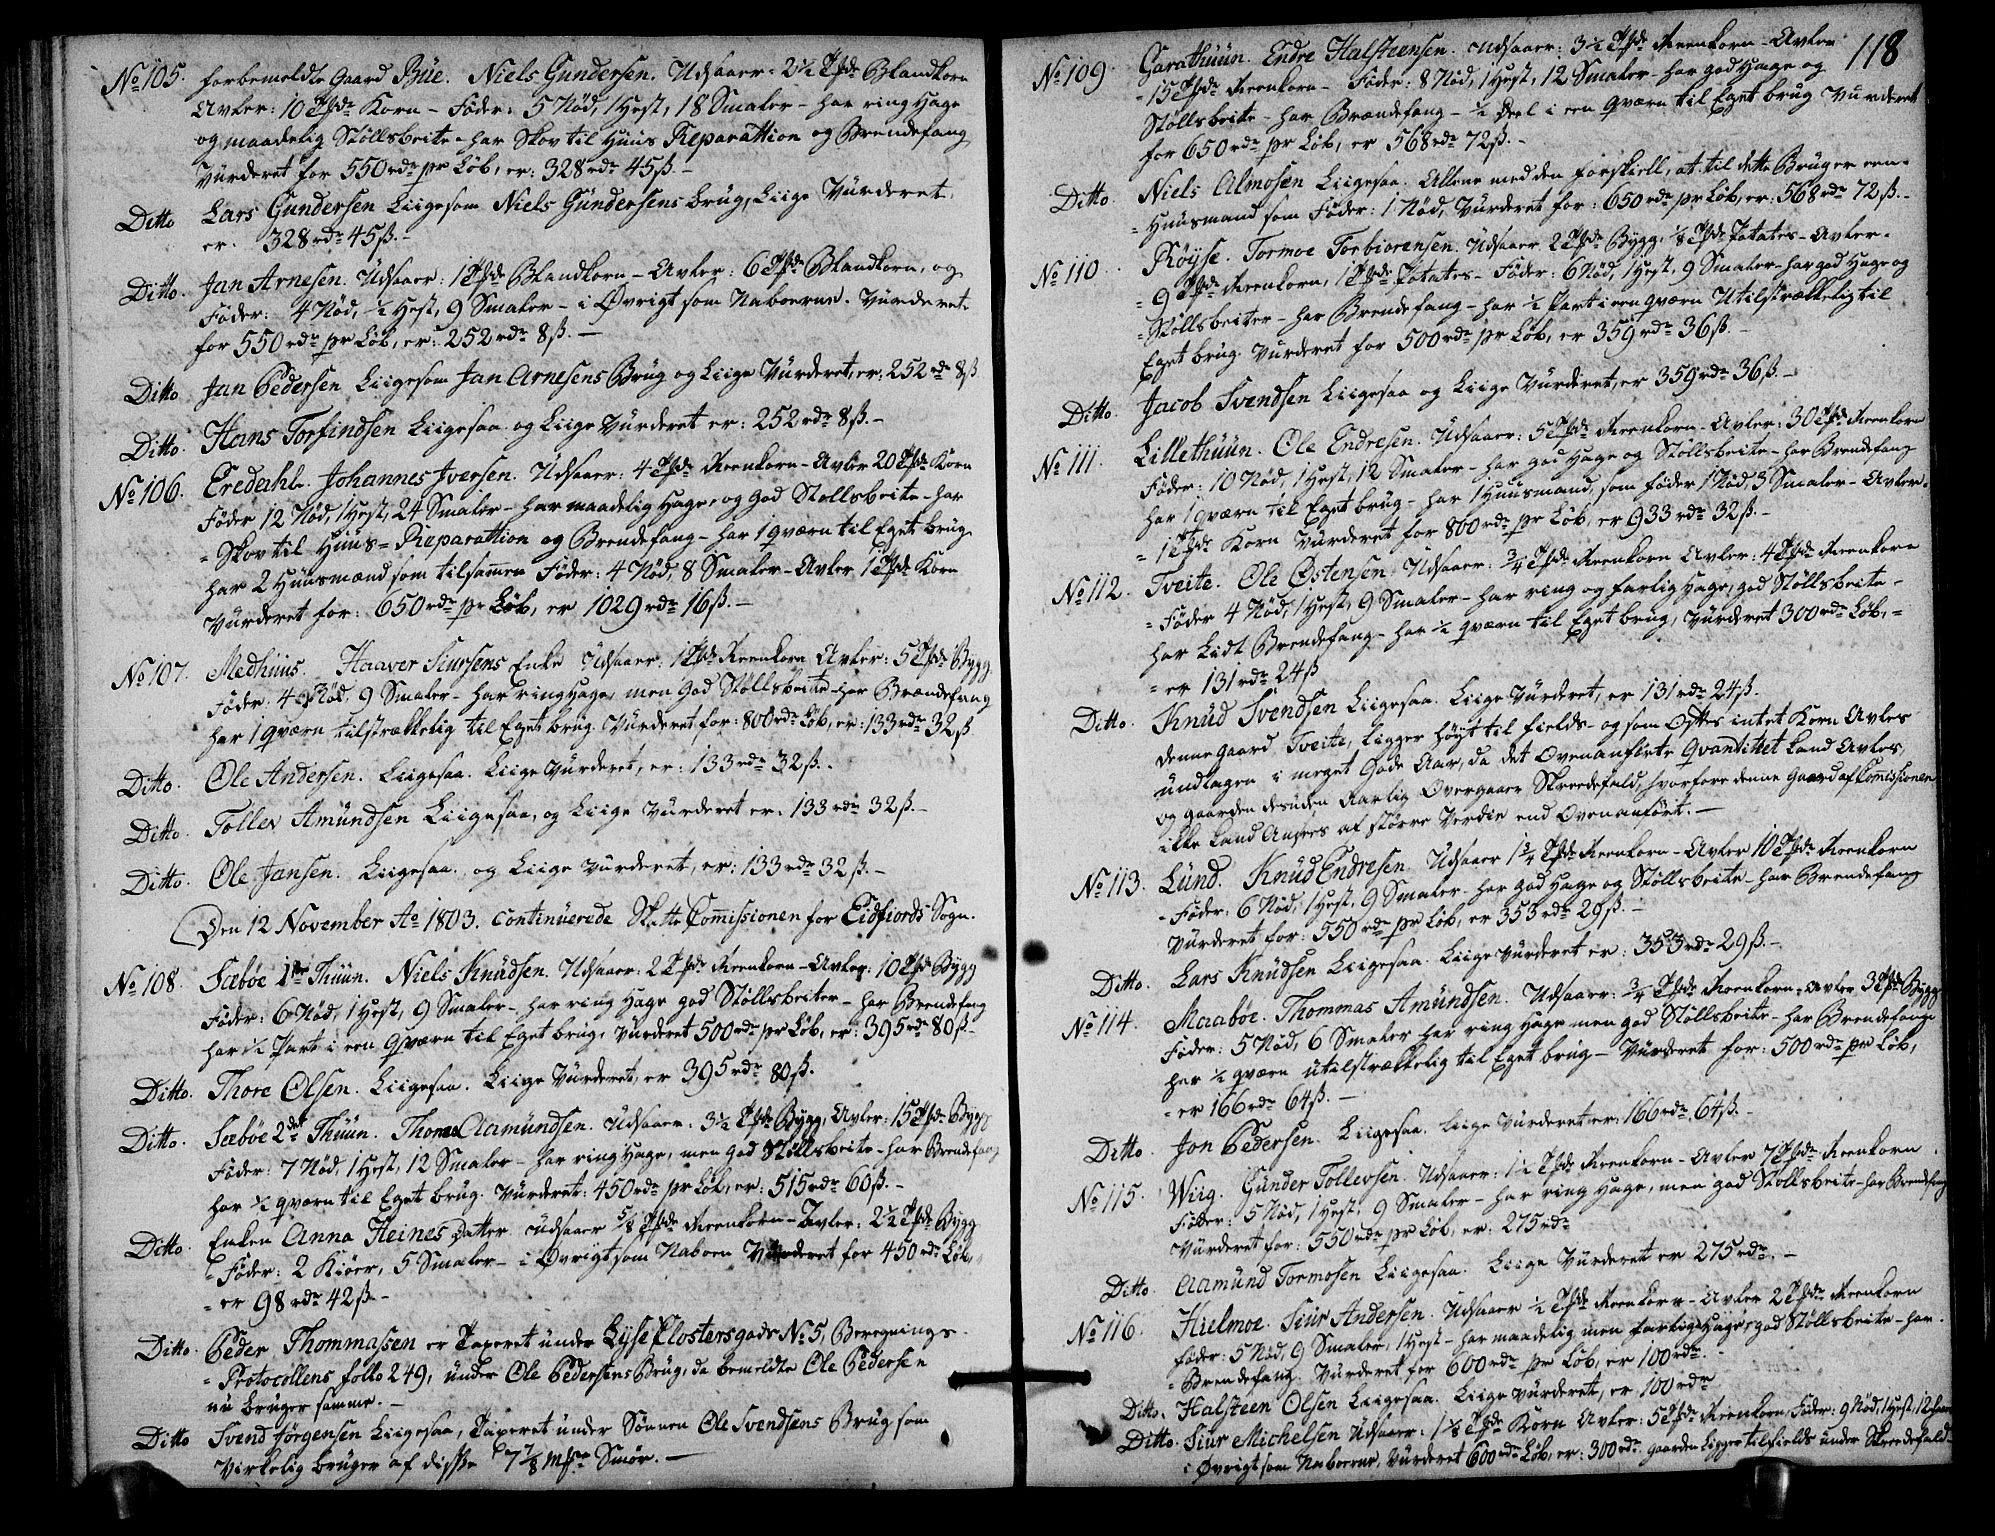 No 105. forbemeldte Gaard Büe. Niels Gundersen. Udsaaer: 2½ Tønde Blandkorn
Avler: 10 Tønde Korn – Føder: 5 Nød, 1 Hest, 18 Smaler – har ring Hage
og maadelig Støllsbeite – har Skov til Huus Reparattion og Brendefang
Vurderet for 550 rdr pr Løb, er: 328 rdr 45 ß. –
Ditto Lars Gundersen Liigesom Niels Gündersens brug, Liige Vurderet
er. 328 rdr 45 ß. –
Ditto. Jan Arnesen. Udsaaer: 1 Tønde Blandkorn – Avler: 6 Tønde Blandkorn, og
Føder: 4 Nød, ½ Hest, 9 Smaler – i Øvrigt som Naboerne. Vurderet
for 550 rdr pr Løb, er: 252 rdr 8 ß. –
Ditto Jan Pedersen Liigesom Jan Arnesens Brug og Liige Vurderet, er: 252 rdr 8 ß
Ditto. Hans Torfindsen Liigesaa og Liige Vurderet er: 252 rdr 8 ß. –
No 106. Eredahl. Johannes Iversen. Udsaaer: 4 Tønde Reenkorn – Avler 20 Tønde Korn
Føder 12 Nød, 1 Hest, 24 Smaler – har maadelig Hage, og god Støllsbeite – har
Skov til Huus = Reparattion og Brendefang – har 1 qværn til Eget brug
har 2 Huusmænd som tilsamen Føder: 4 Nød, 8 Smaler – Avler 1 Tønde Korn
Vurderet for: 650 rdr pr Løb, er 1029 rdr 16 ß. –
No 107. Medhuus. Haaver Siursens Enke Udsaaer: 1 Tønde Reenkorn Avler: 5 Tønde Bygg
Føder: 4 Nød, 9 Smaler – har ring Hage, men God Støllsbeite – har Brændefang
har 1 qværn tilstrækkelig til Eget brug. Vurderet for: 800 rdr Løb, er: 133 rdr 32 ß
Ditto. Ole Andersen. Liigesaa. Liige Vurderet, er: 133 rdr 32 ß.
Ditto. Tollev Amundsen Liigesaa, og Liige Vurderet er: 133 rdr 32 ß. –
Ditto. Ole Jansen. Liigesaa. og Liige Vurderet, er: 133 rdr 32 ß. –
Den 12 November Ao 1803. continuerede Skatte Comissionen for Eidfiords Sogn.
No 108. Sæbøe 1te Thuun. Niels Knudsen. Udsaaer: 2 Tønde Reenkorn – Avler: 10 Tønde Bygg
Føder: 6 Nød, 1 Hest, 9 Smaler – har ring Hage god Støllsbeiter – har Brendefang
har ½ Part i een qværn til Eget brug, Vurderet 500 rdr pr Løb, er: 395 rdr 80 ß –
Ditto. Thore Olsen. Liigesaa. Liige Vurderet, er 395 rdr 80 ß.
Ditto. Sæbøe 2det Thuun. Thomas Aamundsen. Udsaaer: 3½ Tønde Bygg, Avler: 15 Tønde Bygg
Føder: 7 Nød, 1 Hest, 12 Smaler – har ring Hage, men god Støllsbeite – har Brendefang
har ½ qværn til Eget brug. Vurderet: 450 rdr pr Løb, er: 515 rdr 60 ß. –
Ditto. Enken Anna Heines Datter udsaaer 5/8 Tønde Reenkorn – Avler: 2½ Tønde Bygg
Føder: 2 Kiøer, 5 Smaler – i Øvrigt som Naboen Vurderet for 450 rdr Løb,
er 98 rdr 42 ß. –
Ditto. Peder Thommassen er Taxeret under Lyse Closters gods No 5, Beregnings
Protocollens follio 249, under Ole Pedersens Brug, da bemeldte Ole Pedersen
nu bruger samme. –
Ditto Svend Jørgensen Liigesaa, Taxeret under Sønnen Ole Svendsens Brug som
Virkelig bruger af disse 7 7/8 mrk Smør. –
118
No 109. Garathuun. Endre Halsteensen. Udsaaer: 3½ Tønde Reenkorn – Avler
15 Tønde Reenkorn – Føder: 8 Nød, 1 Hest, 12 Smaler – har god Hage og
Støllsbeite – har Brændefang – ½ Deel i een qværn til Eget brug Vurderet
for 650 rdr pr Løb, er 568 rdr 72 ß. –
Ditto Niels Almosen Liigesaa. Allene med den forskiell, at til dette Brug er een
Huusmand som Føder: 1 Nød, Vurderet for: 650 rdr pr Løb, er: 568 rdr 72 ß. –
No 110. Røyse. Tormoe Torbiorensen. Udsaaer 2 Tønde Bygg. 1/8 Tønde Potates – Avler
9 Tønde Reenkorn, 1 Tønde Potates – Føder: 6 Nød, 1 Hest, 9 Smaler – har god Hage og
Støllsbeiter – har Brendefang – har ½ Part i een qværn Utilstrækkelig til
Eget brug. Vurderet for 500 rdr pr Løb, er 359 rdr 36 ß. –
Ditto. Jacob Svendsen Liigesaa og Liige Vurderet, er 359 rdr 36 ß. –
No 111. Lillethuun. Ole Endresen. Udsaaer: 5 Tønde Reenkorn – Avler: 30 Tønde Reenkorn
Føder: 10 Nød, 1 Hest, 12 Smaler – har god Hage og Støllsbeite – har Brendefang
har 1 qværn til Eget brug – har 1 Huusmand, som føder 1 Nød, 3 Smaler – Avler
1 Tønde Korn Vurderet for 800 rdr pr Løb, er 933 rdr 32 ß. –
No 112. Tveite. Ole Østensen Udsaaer: ¾ Tønde Reenkorn Avler: 4 Tønde Reenkorn
Føder 4 Nød, 1 Hest, 9 Smaler – har ring og farlig Hage, god Støllsbeite –
har Lidt Brendefang – har ½ qværn til Eget brug, Vurderet 300 rdr Løb,
er 131 rdr 24 ß
Ditto. Knud Svendsen Liigesaa. Liige Vurderet, er 131 rdr 24 ß.
denne gaard Tveite, ligger høyt til fields – og som oftes intet Korn Avles
undtagen i meget Gode Aar, da det Ovenanførte qvantitet kand Avles,
og gaarden desuden Aarlig Overgaaer Skreedefald, hvorfore denne Gaard af Comissionen
ikke kand Ansees af større Verdie end Ovenanført. –
No 113. Lund. Knud Endresen. Udsaaer 1¾ Tønde Reenkorn – Avler 10 Tønde Reenkorn
Føder: 6 Nød, 1 Hest, 9 Smaler – har god Hage og Støllsbeite – har Brendefang
Vurderet for: 550 rdr pr Løb, er 353 rdr 29 ß. –
Ditto. Lars Knudsen Liigesaa. Liige Vurderet er: 353 rdr 29 ß. –
No 114. Maabøe. Thommas Amundsen. Udsaaer: ¾ Tønde Reenkorn – Avler 3 Tønde Bygg
Føder: 5 Nød, 6 Smaler har ring Hage men god Støllsbeite – har Brendefang
har ½ qværn utilstrækkelig til Eget brug – Vurderet for: 500 rdr pr Løb,
er 166 rdr 64 ß. –
Ditto. Jon Pedersen. Liigesaa. Liige Vurderet er: 166 rdr 64 ß. –
No 115. Wiig. Gunder Tollevsen. Udsaaer: 1½ Tønde Reenkorn – Avler 7 Tønde Reenkorn
Føder: 5 Nød, 1 Hest, 9 Smaler – har ring Hage, men god Støllsbeite – har Brendefang
Vurderet for: 550 rdr pr Løb, er: 275 rdr
Ditto. Aamund Tormosen Liigesaa. Liige Vurderet er 275 rdr. –
No 116. Hielmoe. Siur Andersen. Udsaaer ½ Tønde Reenkorn – Avler 2 Tønde Reenkorn
føder: 5 Nød, 9 Smaler, 1 Hest – har maadelig men farlig Hage, god Støllsbeite – har
Brendefang. Vurderet for 600 rdr pr Løb, er 100 rdr. –
Ditto. Halsteen Olsen Liigesaa. Liige Vurderet, er 100 rdr
Ditto. Siur Michelsen Udsaaer: 1 1/8 Tønde Korn Avler: 5 Tønde Reenkorn, Føder: 9 Nød, 1 Hest, 12 Smaler
i Øvrigt som Naboerne. Vurderet 600 rdr Løb, er: 300 rdr. gaarden Ligger tilfields under Skreedefald